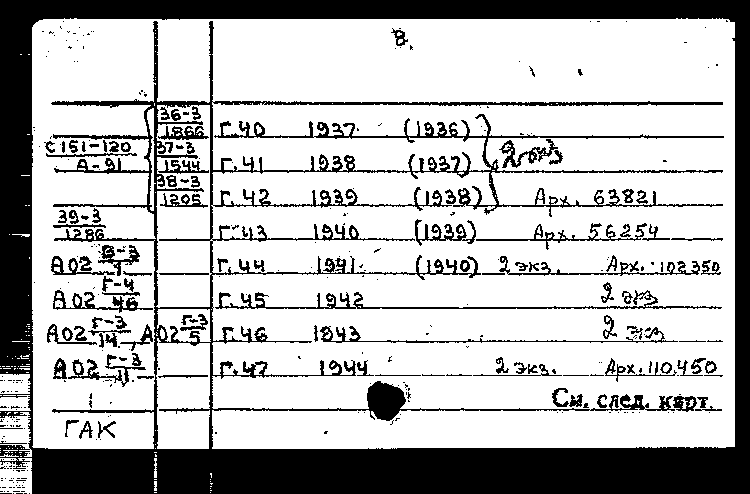 8.
36-3
1866 Г.40 1937 (1936)
С151-120
А-91 37-3
1544 Г.41 1938 (1937) 2 экз
38-3
1205 Г.42 1939 (1938) Арх. 63821
39-3
1286 Г.43 1940 (1939) Арх. 56254
А02 В-3 Г.44 1941 (1940) 2 экз. Арх. 102350
А02 Г-4
46 Г.45 1942 2 экз
А02 Г-3
14, А02 Г-3
5 Г.46 1943 2 экз
А02 Г-3 Г.47 1944 2 экз. Арх. 110.450
См. след. карт.
ГАК